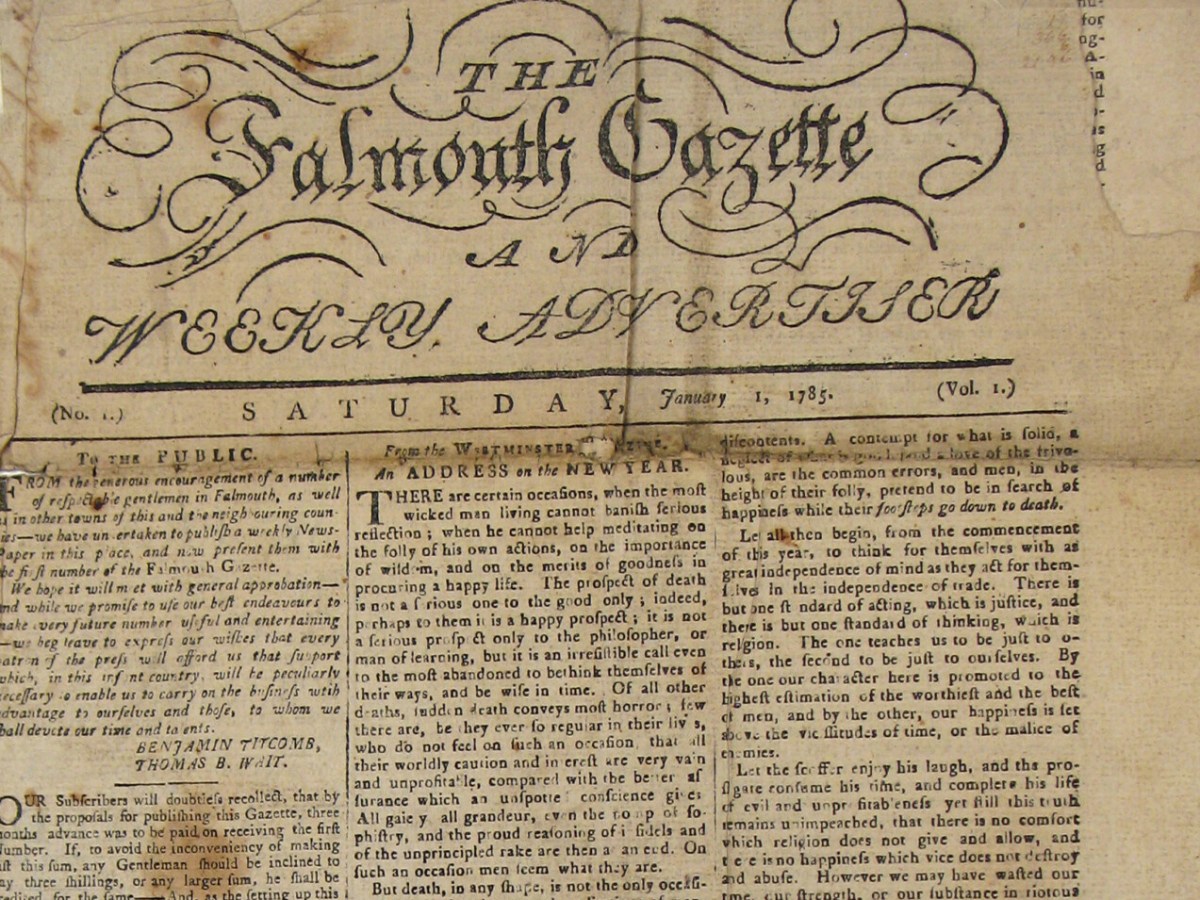 THE
Falmouth Gazette
AND
WEEKLY ADVERTISER
(No. 1.) SATURDAY, January 1, 1785. (Vol. 1.)
To the PUBLIC.
FROM the generous encouragement of a number
of respectable gentlemen in Falmouth, as well
as in other towns of this and the neighbouring coun-
ties—we have undertaken to publish a weekly News-
Paper in this place, and now present them with
the first number of the Falmouth Gazette.
We hope it will meet with general approbation—
and while we promise to use our best endeavours to
make every future number useful and entertaining
—we beg leave to express our wishes that every
patron of the press will afford us that support
which, in this infant country, will be peculiarly
necessary to enable us to carry on the business with
advantage to ourselves and those, to whom we
shall devote our time and talents.
BENJAMIN TITCOMB,
THOMAS B. WAIT.
OUR Subscribers will doubtless recollect, that by
the proposals for publishing this Gazette, three
months advance was to be paid on receiving the first
Number. If, to avoid the inconveniency of making
this sum, any Gentleman should be inclined to
three shillings, or any larger sum, he shall be
credited for the same—And, as the setting up this
From the WESTMINSTER MAGAZINE.
An ADDRESS on the NEW YEAR.
THERE are certain occasions, when the most
wicked man living cannot banish serious
reflection; when he cannot help meditating on
the folly of his own actions, on the importance
of wisdom, and on the merits of goodness in
procuring a happy life. The prospect of death
is not a serious one to the good only; indeed,
perhaps to them it is a happy prospect; it is not
a serious prospect only to the philosopher, or
man of learning, but it is an irresistible call even
to the most abandoned to bethink themselves of
their ways, and be wise in time. Of all other
deaths, sudden death conveys most horror; few
there are, be they ever so regular in their lives,
who do not feel on such an occasion, that all
their worldly caution and interest are very vain
and unprofitable, compared with the better as
surance which an unspotted conscience gives
All gaiety all grandeur, even the pomp of so-
phistry, and the proud reasoning of infidels and
of the unprincipled rake are then at an end. On
such an occasion men seem what they are.
But death, in any shape, is not the only occasi-
discontents. A contempt for what is solid, a
neglect of what is good, and a love of the trivo-
lous, are the common errors, and men, in the
height of their folly, pretend to be in search of
happiness while their footsteps go down to death.
Let all then begin, from the commencement
of this year, to think for themselves with as
great independence of mind as they act for them-
selves in the independence of trade. There is
but one standard of acting, which is justice, and
there is but one standard of thinking, which is
religion. The one teaches us to be just to o-
thers, the second to be just to ourselves. By
the one our character here is promoted to the
highest estimation of the worthiest and the best
of men, and by the other, our happiness is set
above the vicissitudes of time, or the malice of
enemies.
Let the scoffer enjoy his laugh, and the pro-
fligate consume his time, and complete his life
of evil and unprofitableness yet still this truth
remains unimpeached, that there is no comfort
which religion does not give and allow, and
there is no happiness which vice does not destroy
and abuse. However we may have wasted our
time, our strength, or our substance in riotous